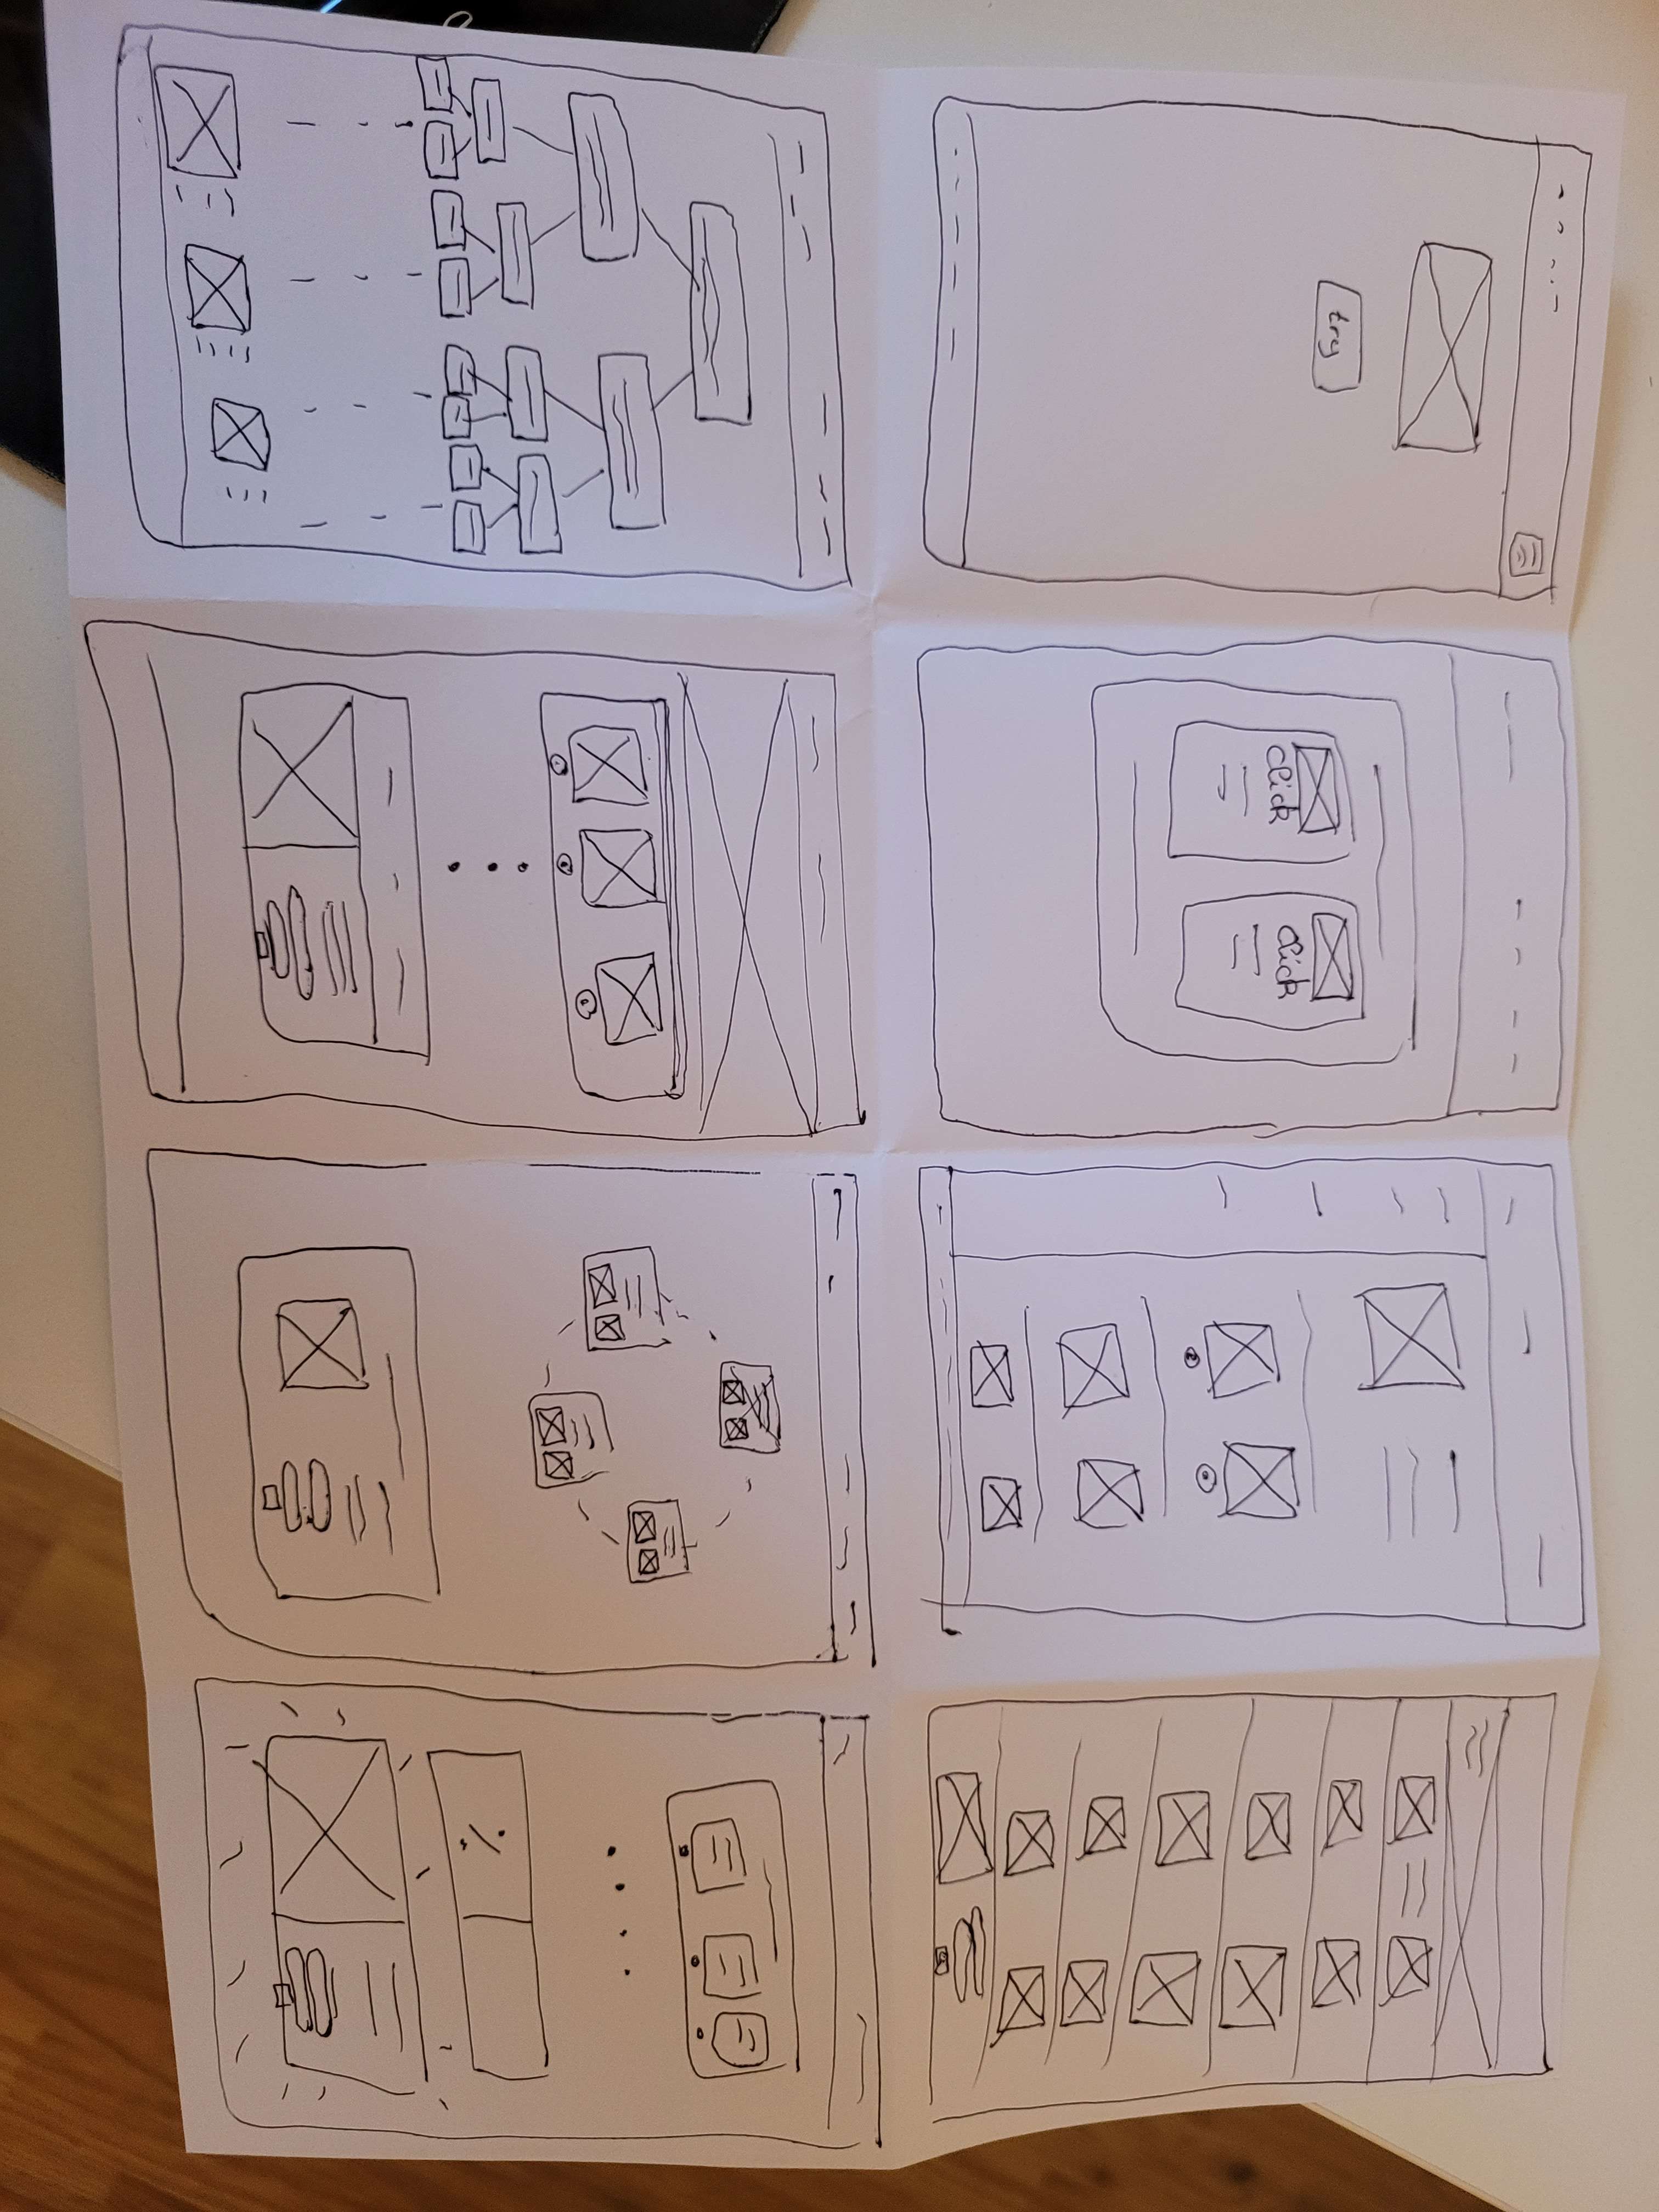 try
Click
Click